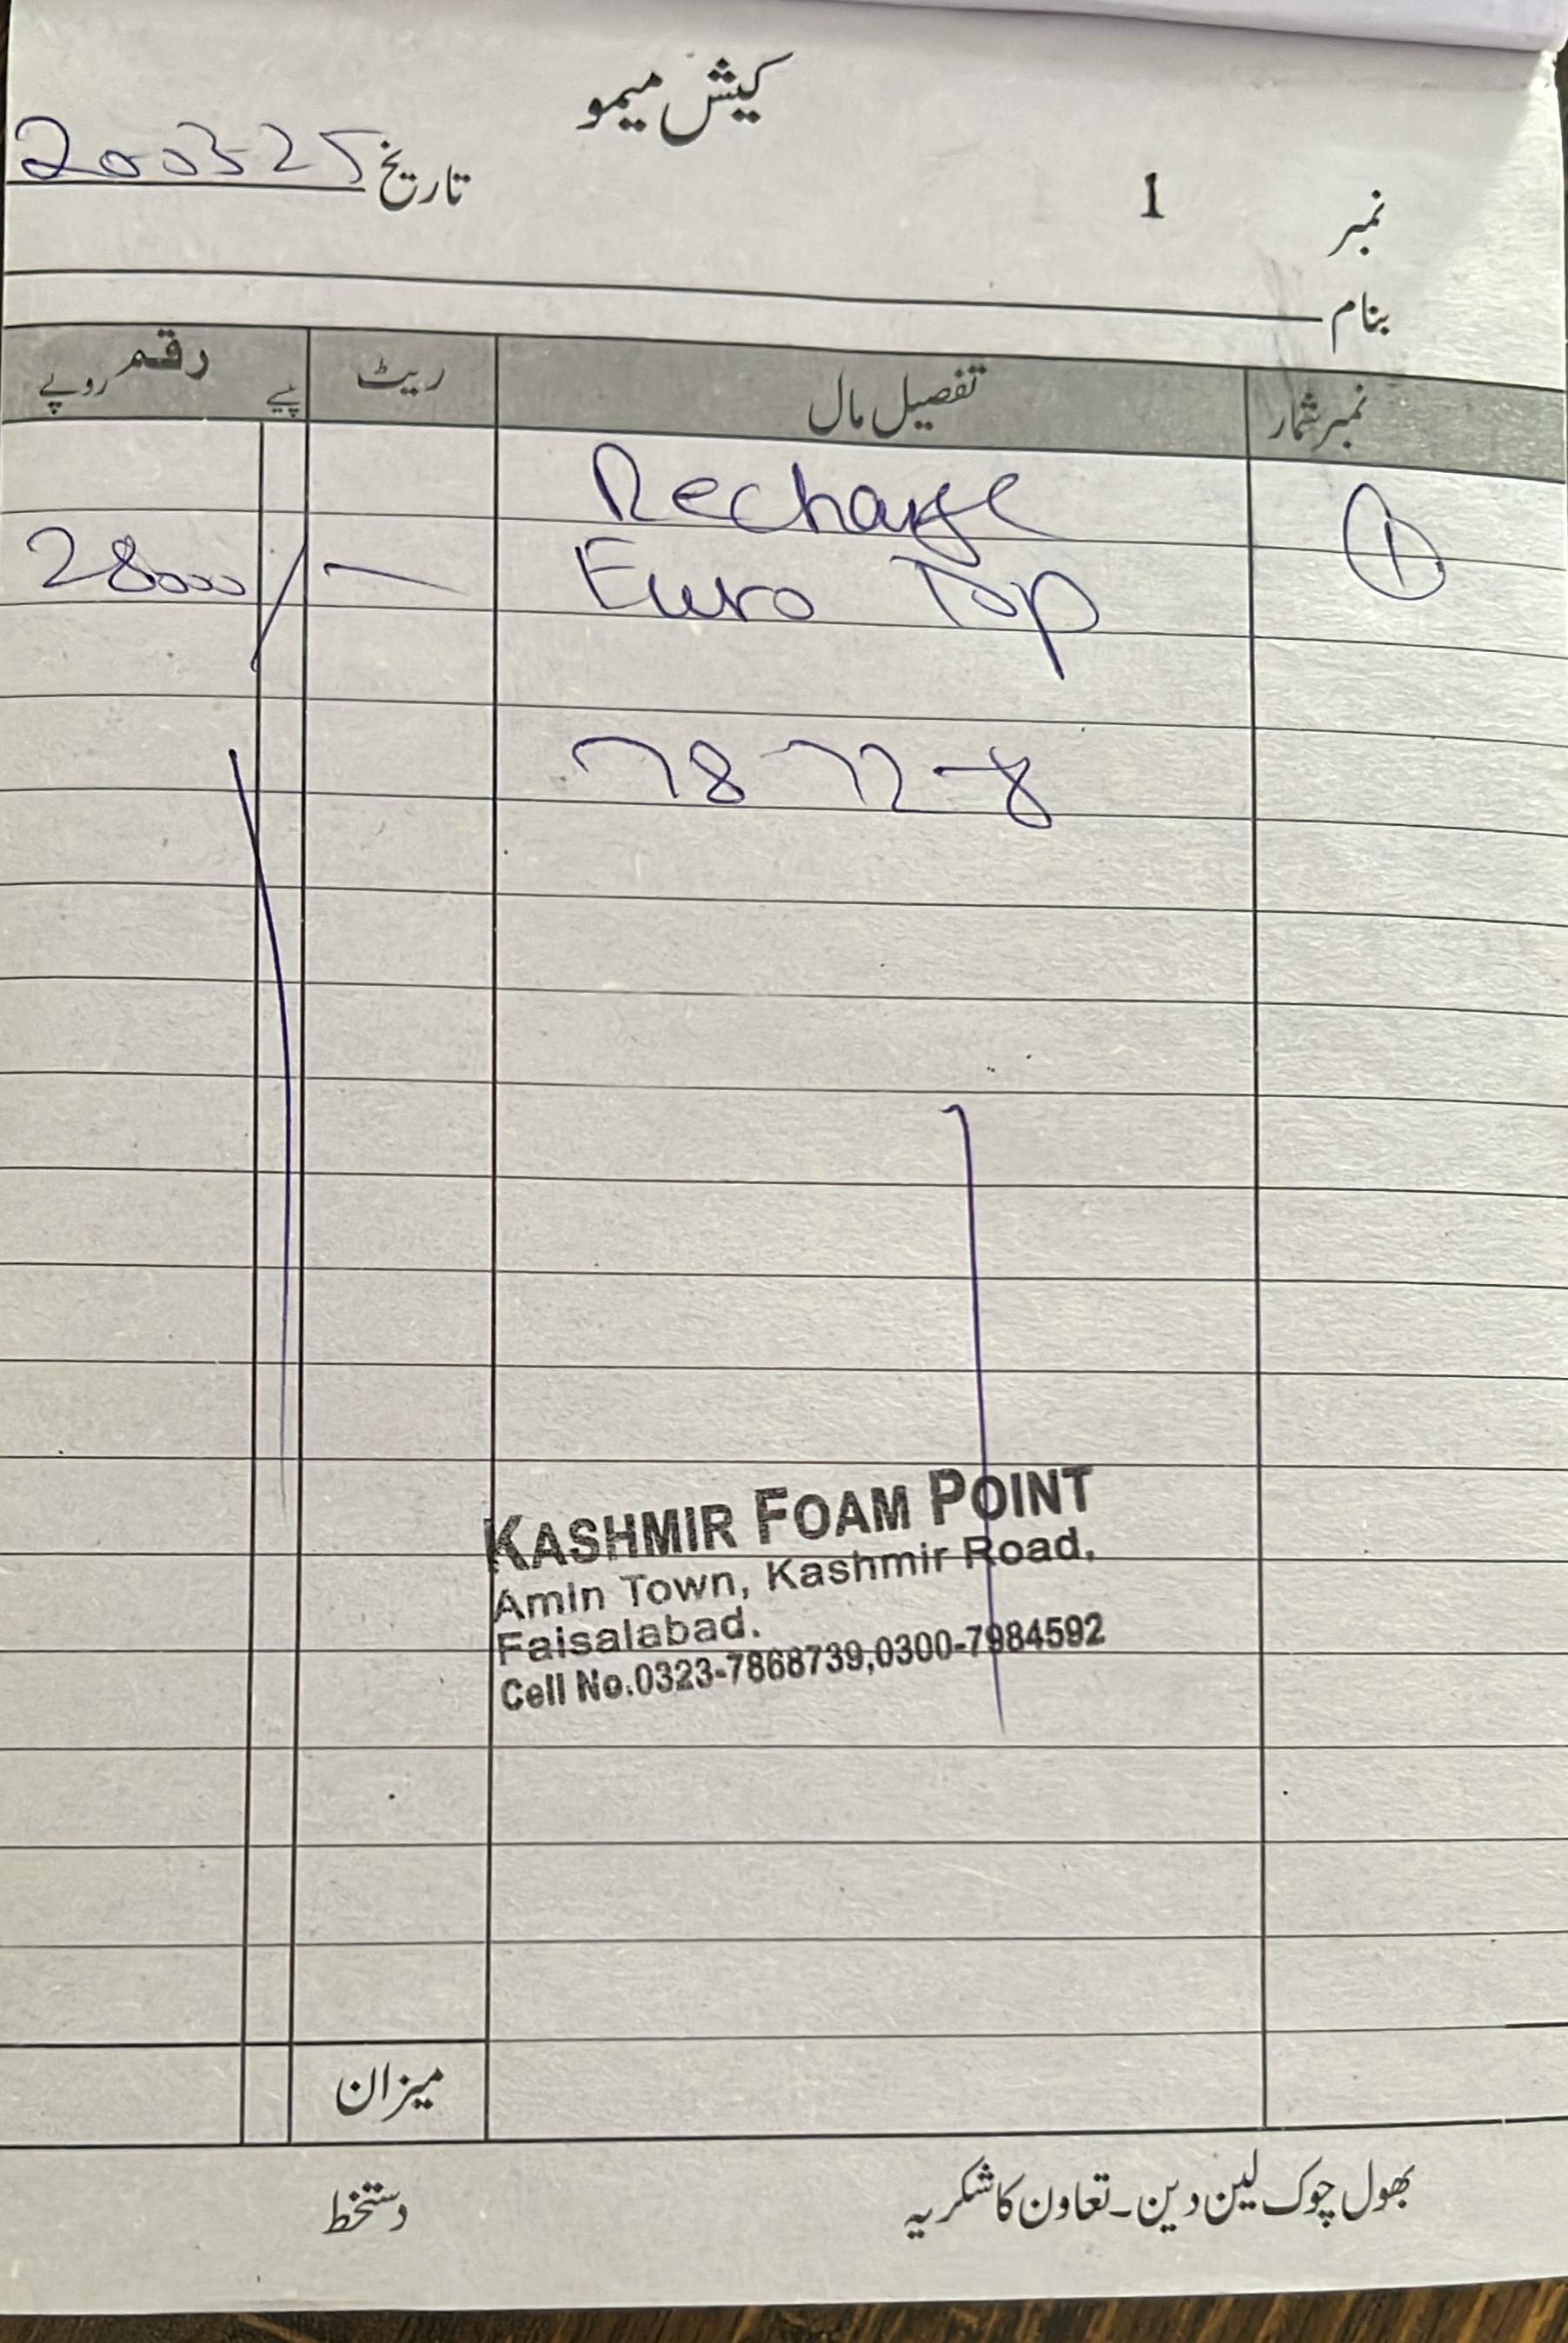 کیش میمو
نمبر 1 تاریخ 200325
بنام
نمبر شمار تفصیل مال ریٹ رقم
پیسے روپے
Recharge
① Euro Top — 28000/
78 72-8
KASHMIR FOAM POINT
Amin Town, Kashmir Road,
Faisalabad.
Cell No.0323-7868739,0300-7984592
میزان
بھول چوک لین دین۔تعاون کا شکریہ دستخط